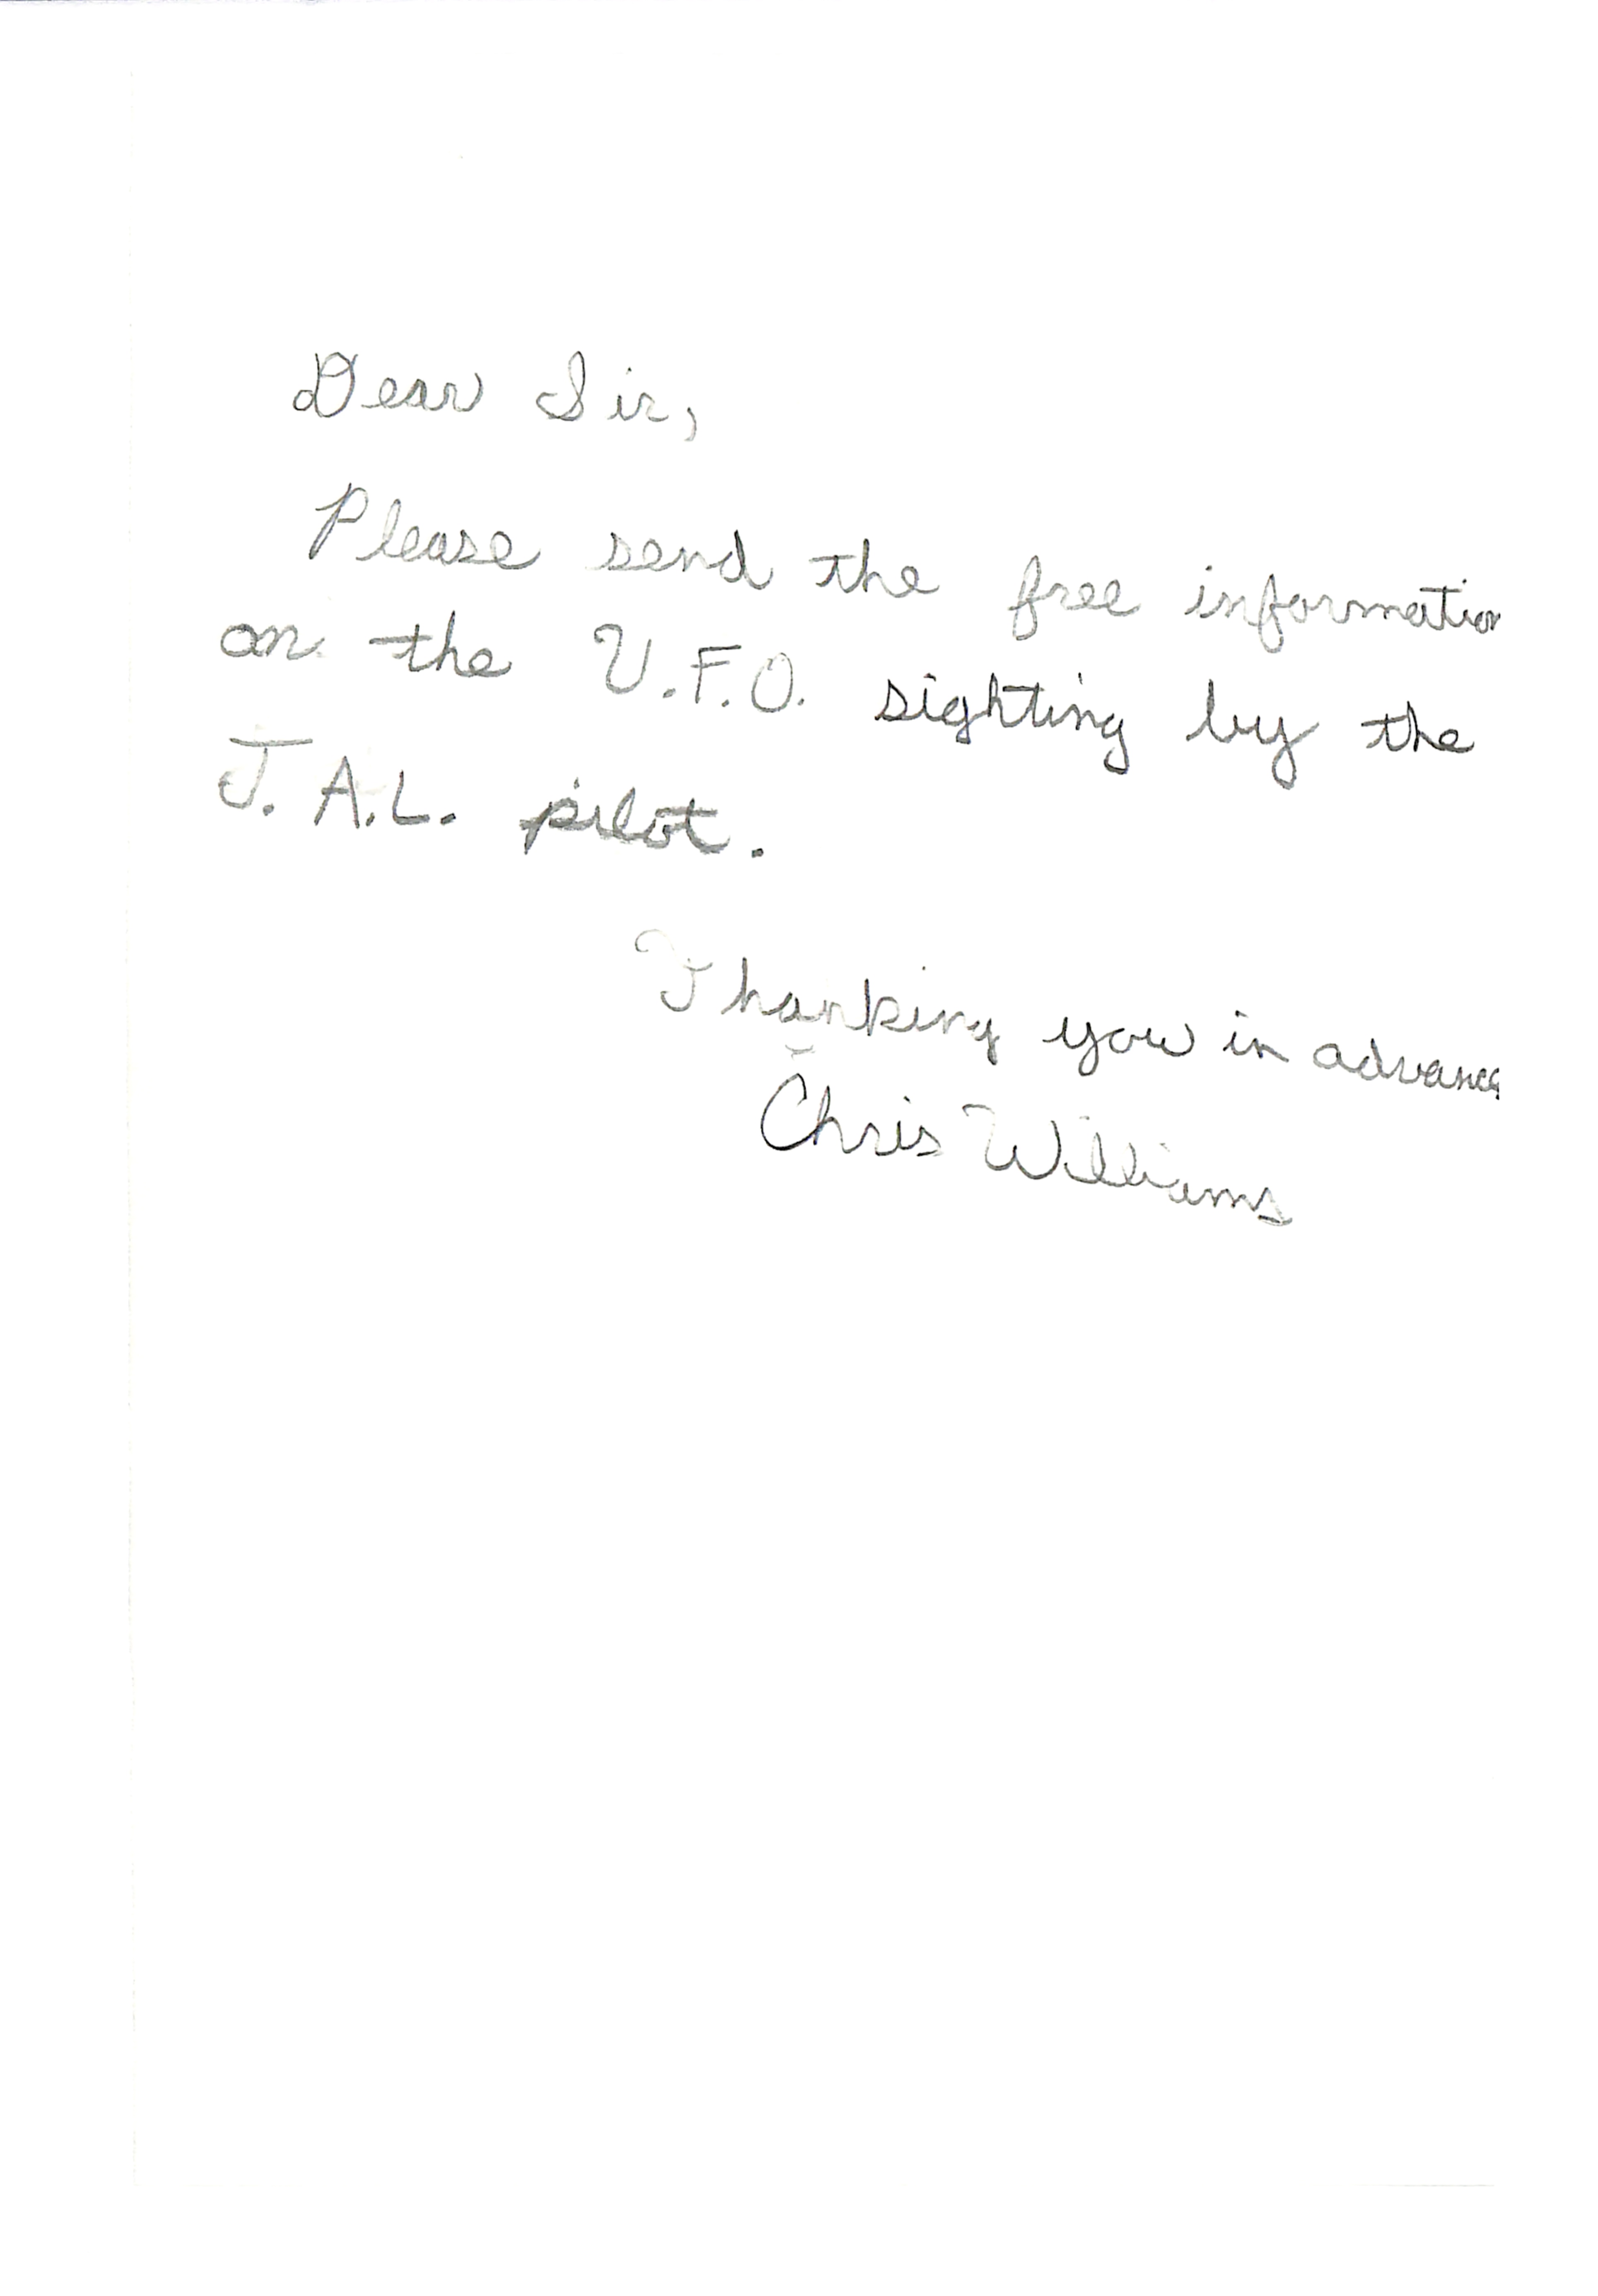 Dear Sir,
Please send the free information
on the U.F.O. sighting by the
J.A.L. pilot.
Thanking you in advance
Chris Williams